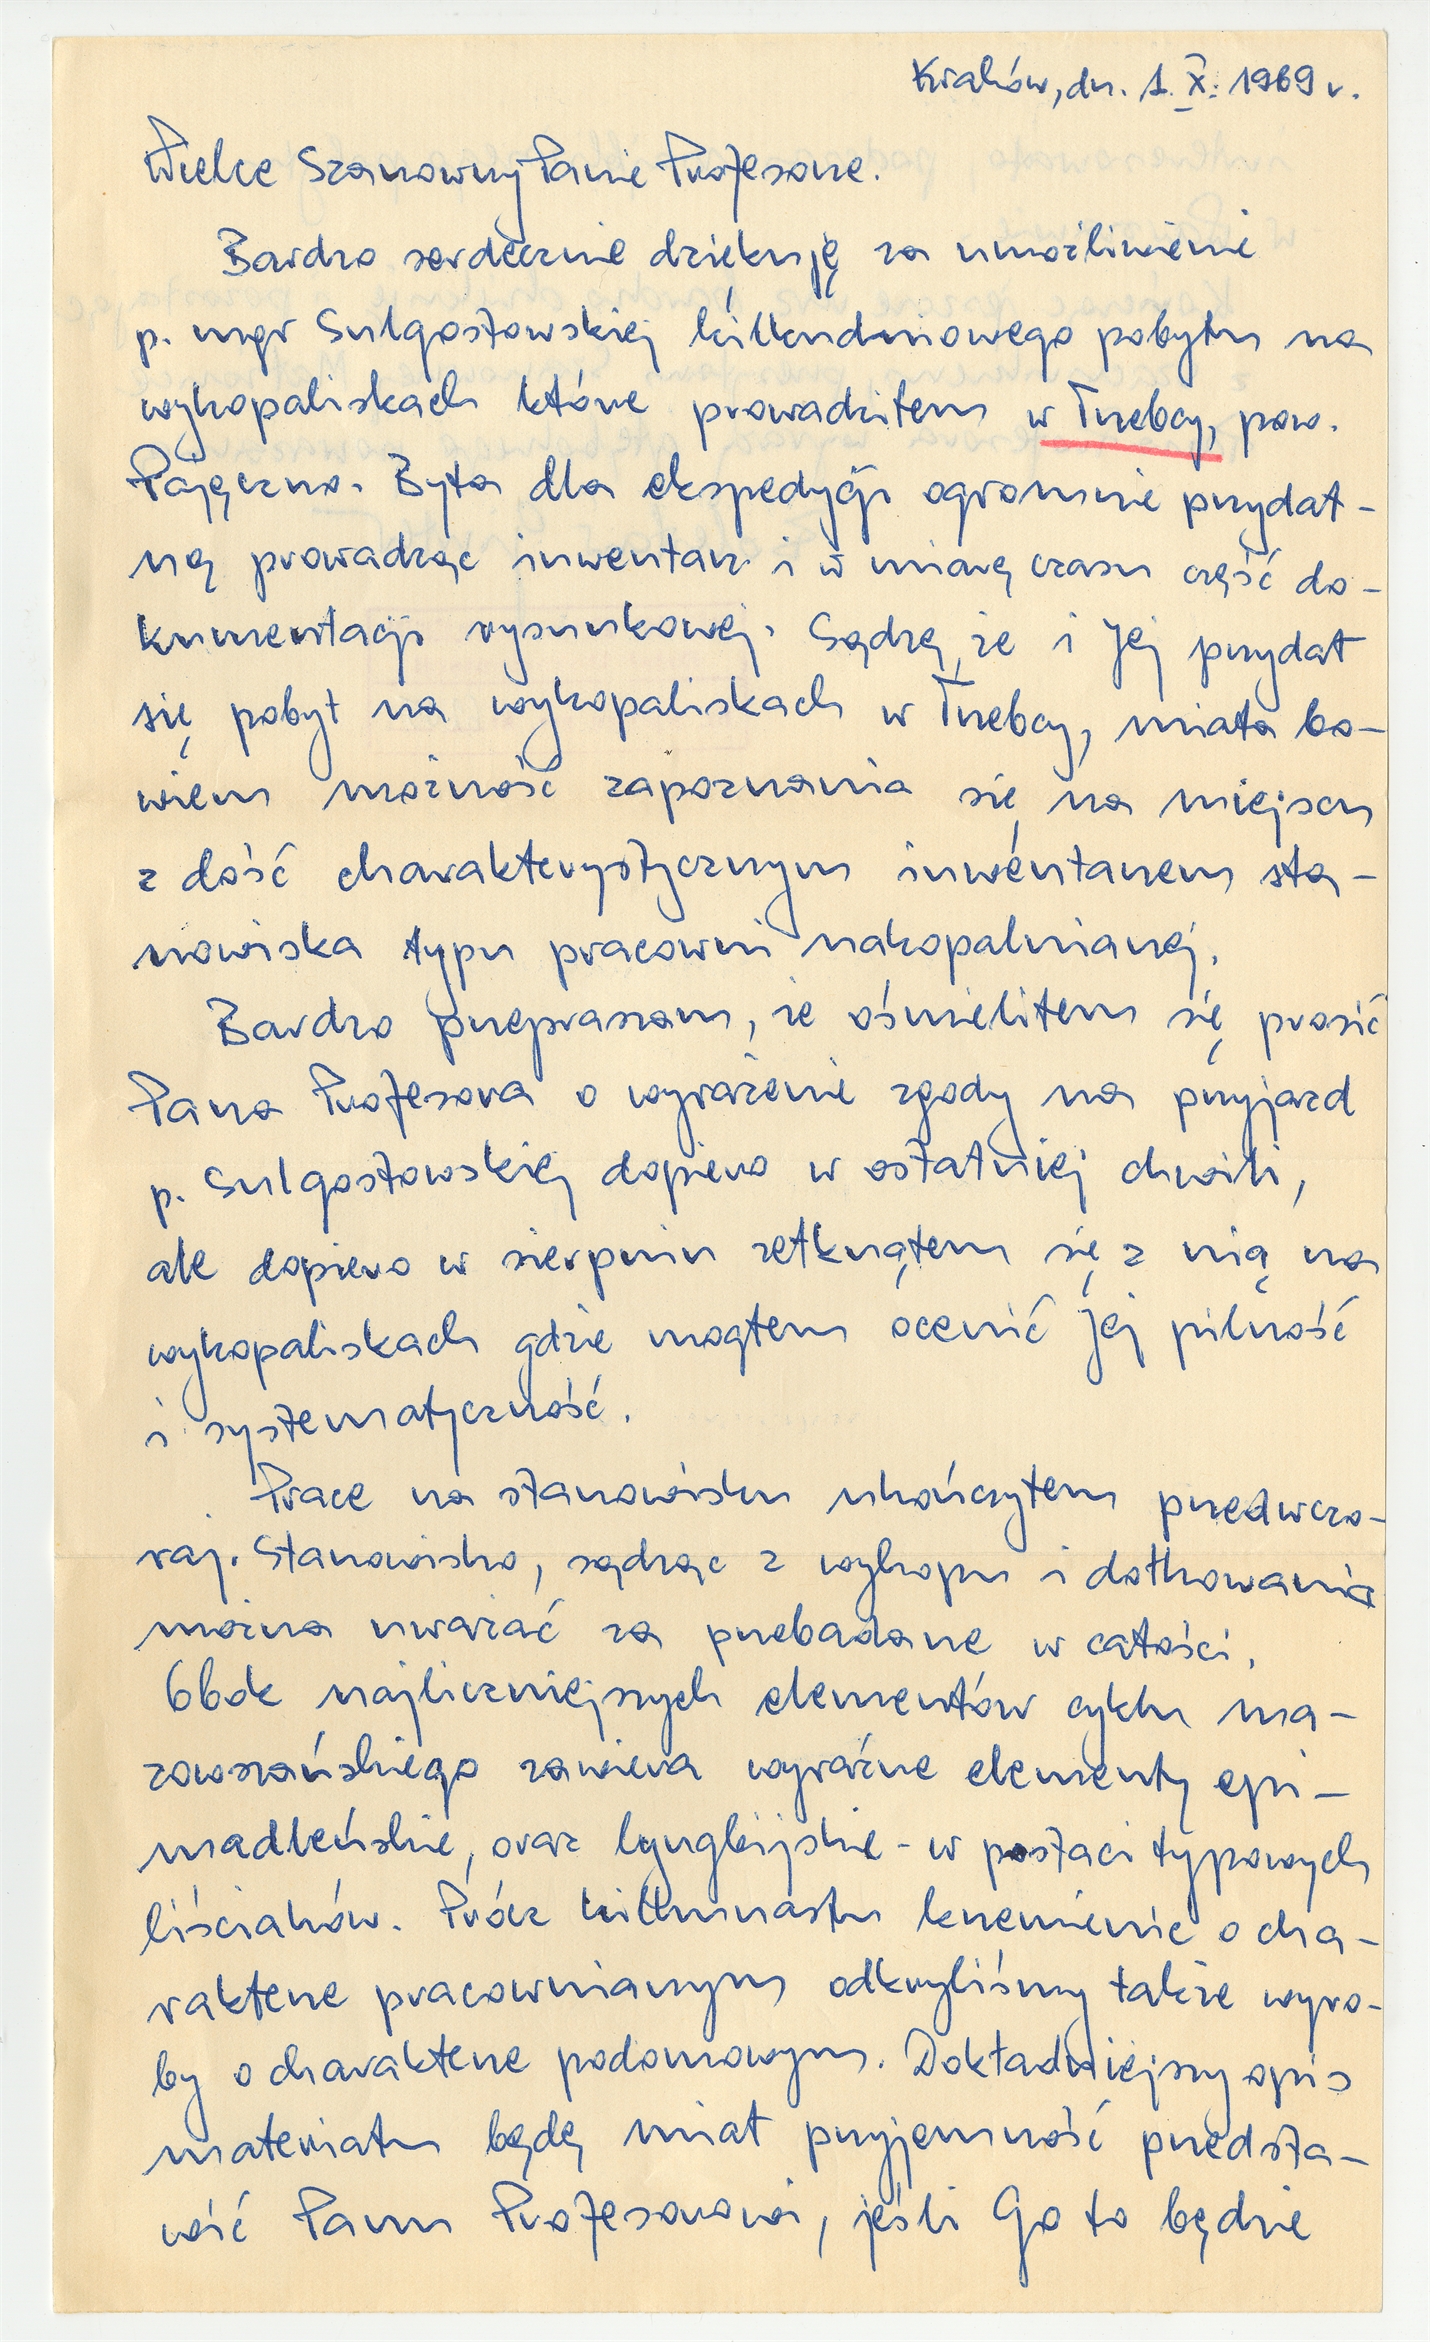 Kraków, dn. 1.X.1969 r.
Wielce Szanowny Panie Profesorze.
Bardzo serdecznie dziękuję za umożliwienie
p. mgr Sulgostowskiej kilkudniowego pobytu na
wykopaliskach które prowadziłem w Trzebcy, pow.
Pajęczno. Była dla ekspedycji ogromnie przydat-
ną prowadząc inwentarz i w miarę czasu część do-
kumentacji rysunkowej. Sądzę, że i Jej przydał
się pobyt na wykopaliskach w Trzebcy, miała bo-
wiem możność zapoznania się na miejscu
z dość charakterystycznym inwentarzem sta-
nowiska typu pracowni nakopalnianej.
Bardzo przepraszam, że ośmieliłem się prosić
Pana Profesora o wyrażenie zgody na przyjazd
p. Sulgostowskiej dopiero w ostatniej chwili,
ale dopiero w sierpniu zetknąłem się z nią na
wykopaliskach gdzie mogłem ocenić Jej pilność
i systematyczność.
Prace na stanowisku ukończyłem przedwczo-
raj. Stanowisko, sądząc z wykopu i dołkowania
można uważać za przebadane w całości.
Obok najliczniejszych elementów cyklu ma-
zowszańskiego zawiera wyraźne elementy epi-
madleńskie, oraz lyngbijskie - w postaci typowych
liściaków. Prócz kilkunastu krzemienic o cha-
rakterze pracownianym odkryliśmy także wyro-
by o charakterze podomowym. Dokładniejszy opis
materiału będę miał przyjemność przedsta-
wić Panu Profesorowi, jeśli Go to będzie